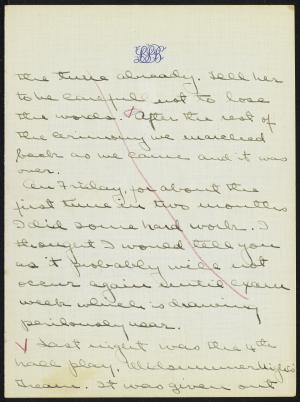 the tune already. Tell her
to be careful not to lose
the words. After the rest of
the ceremony we marched
back as we came and it was
over.
On Friday, for about the
first time in two months
I did some hard work. I
thought I would tell you
as it probably will not
occur again until exam
week which is drawing
perilously near.
Last night was the 4th
hall play, Midsummer Night's
Dream. It was given out